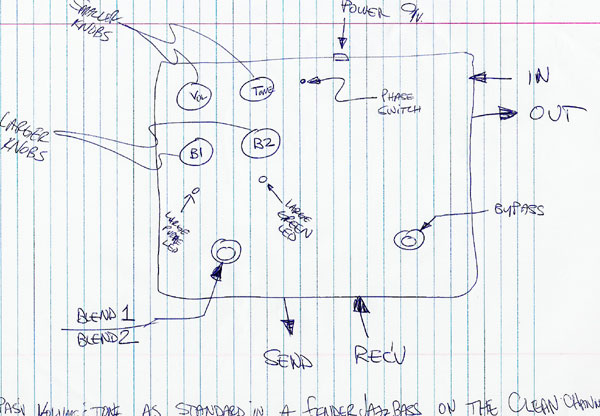 SMALLER
KNOBS
POWER 9v.
VOL
TONE
PHASE
SWITCH
IN
OUT
LARGER
KNOBS
B1
B2
LARGE
LED
LARGE
GREEN
LED
BYPASS
BLEND 1
BLEND 2
SEND
REC'V
TONE AS STANDARD IN A FENDER JAZZ BASS ON THE CLEAN CHANN